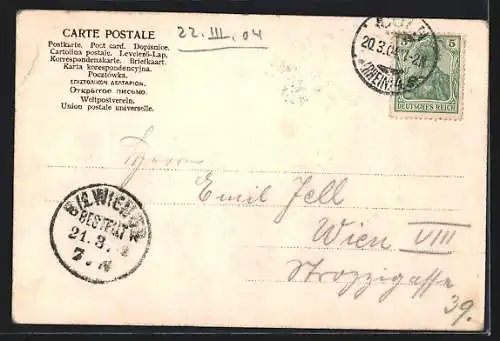 CARTE POSTALE
Postkarte. Post card. Dopisnice.
Cartolina postale. Levelező-Lap.
Korrespondenzkarte. Briefkaart.
Karta korespondencyjna.
Pocztówka.
ΕΠΙΣΤΟΛΙΚΟΝ ΔΕΛΤΑΡΙΟΝ.
Открытое письмо.
Weltpostverein.
Union postale universelle.
22. III. 04
20.3.04
(RHEIN)
5
DEUTSCHES REICH
Herrn
Emil Jell
Wien VIII
Strozzigasse
39.
WIEN
BESTELLT
21.3.
7.N